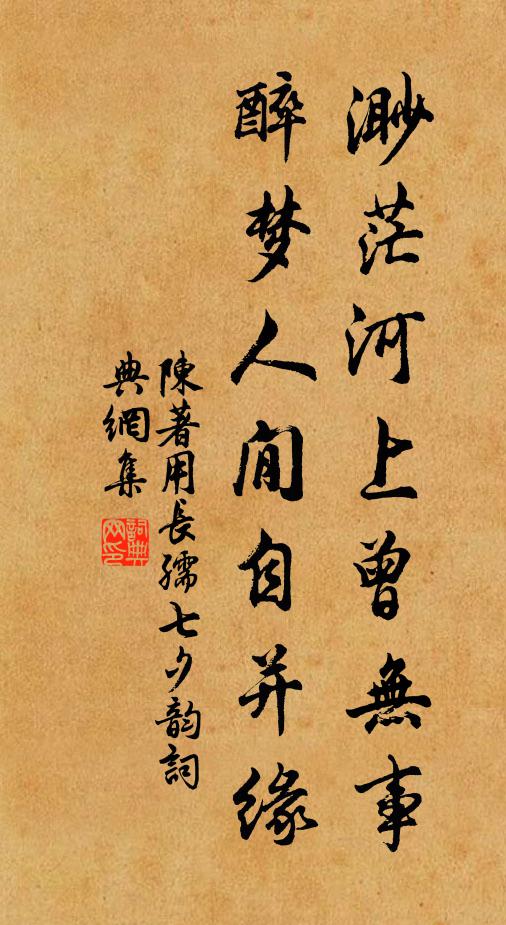 渺茫河上曾無事
醉梦人间自并缘
陳著用長孺七夕韵詞
典網集
詞典
网印